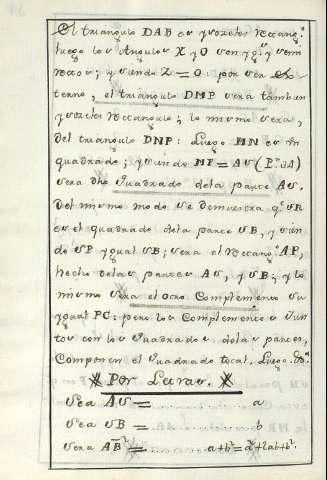 El triangulo DAB es ysozeles Rectang.º
luego los Angulos X y O son yg.s y semi
Rectos; y siendo Z = O por ser Ex
terno, el triangulo DMP sera tambien
ysozeles Rectangulo; lo mismo sera,
Del triangulo DNP: Luego MN es un
quadrado; y siendo MP = AS (P.ª 0A)
sera dho Quadrado dela parte AS.
Del mismo modo se demuestra q.e SR
es el quadrado dela parte SB, y sien
do SP ygual SB; sera el Rectang.º AP,
hecho delas partes AS, y SB; y lo
mismo sera el otro Complemento su
ygual PC: pero los Complementos Jun
tos con los Quadrados delas partes,
Componen el Quadrado total. Luego &.ª
Por Letras.
Sea AS = a
Sea SB = b
sera AB² = a+b² = a²+2ab+b².